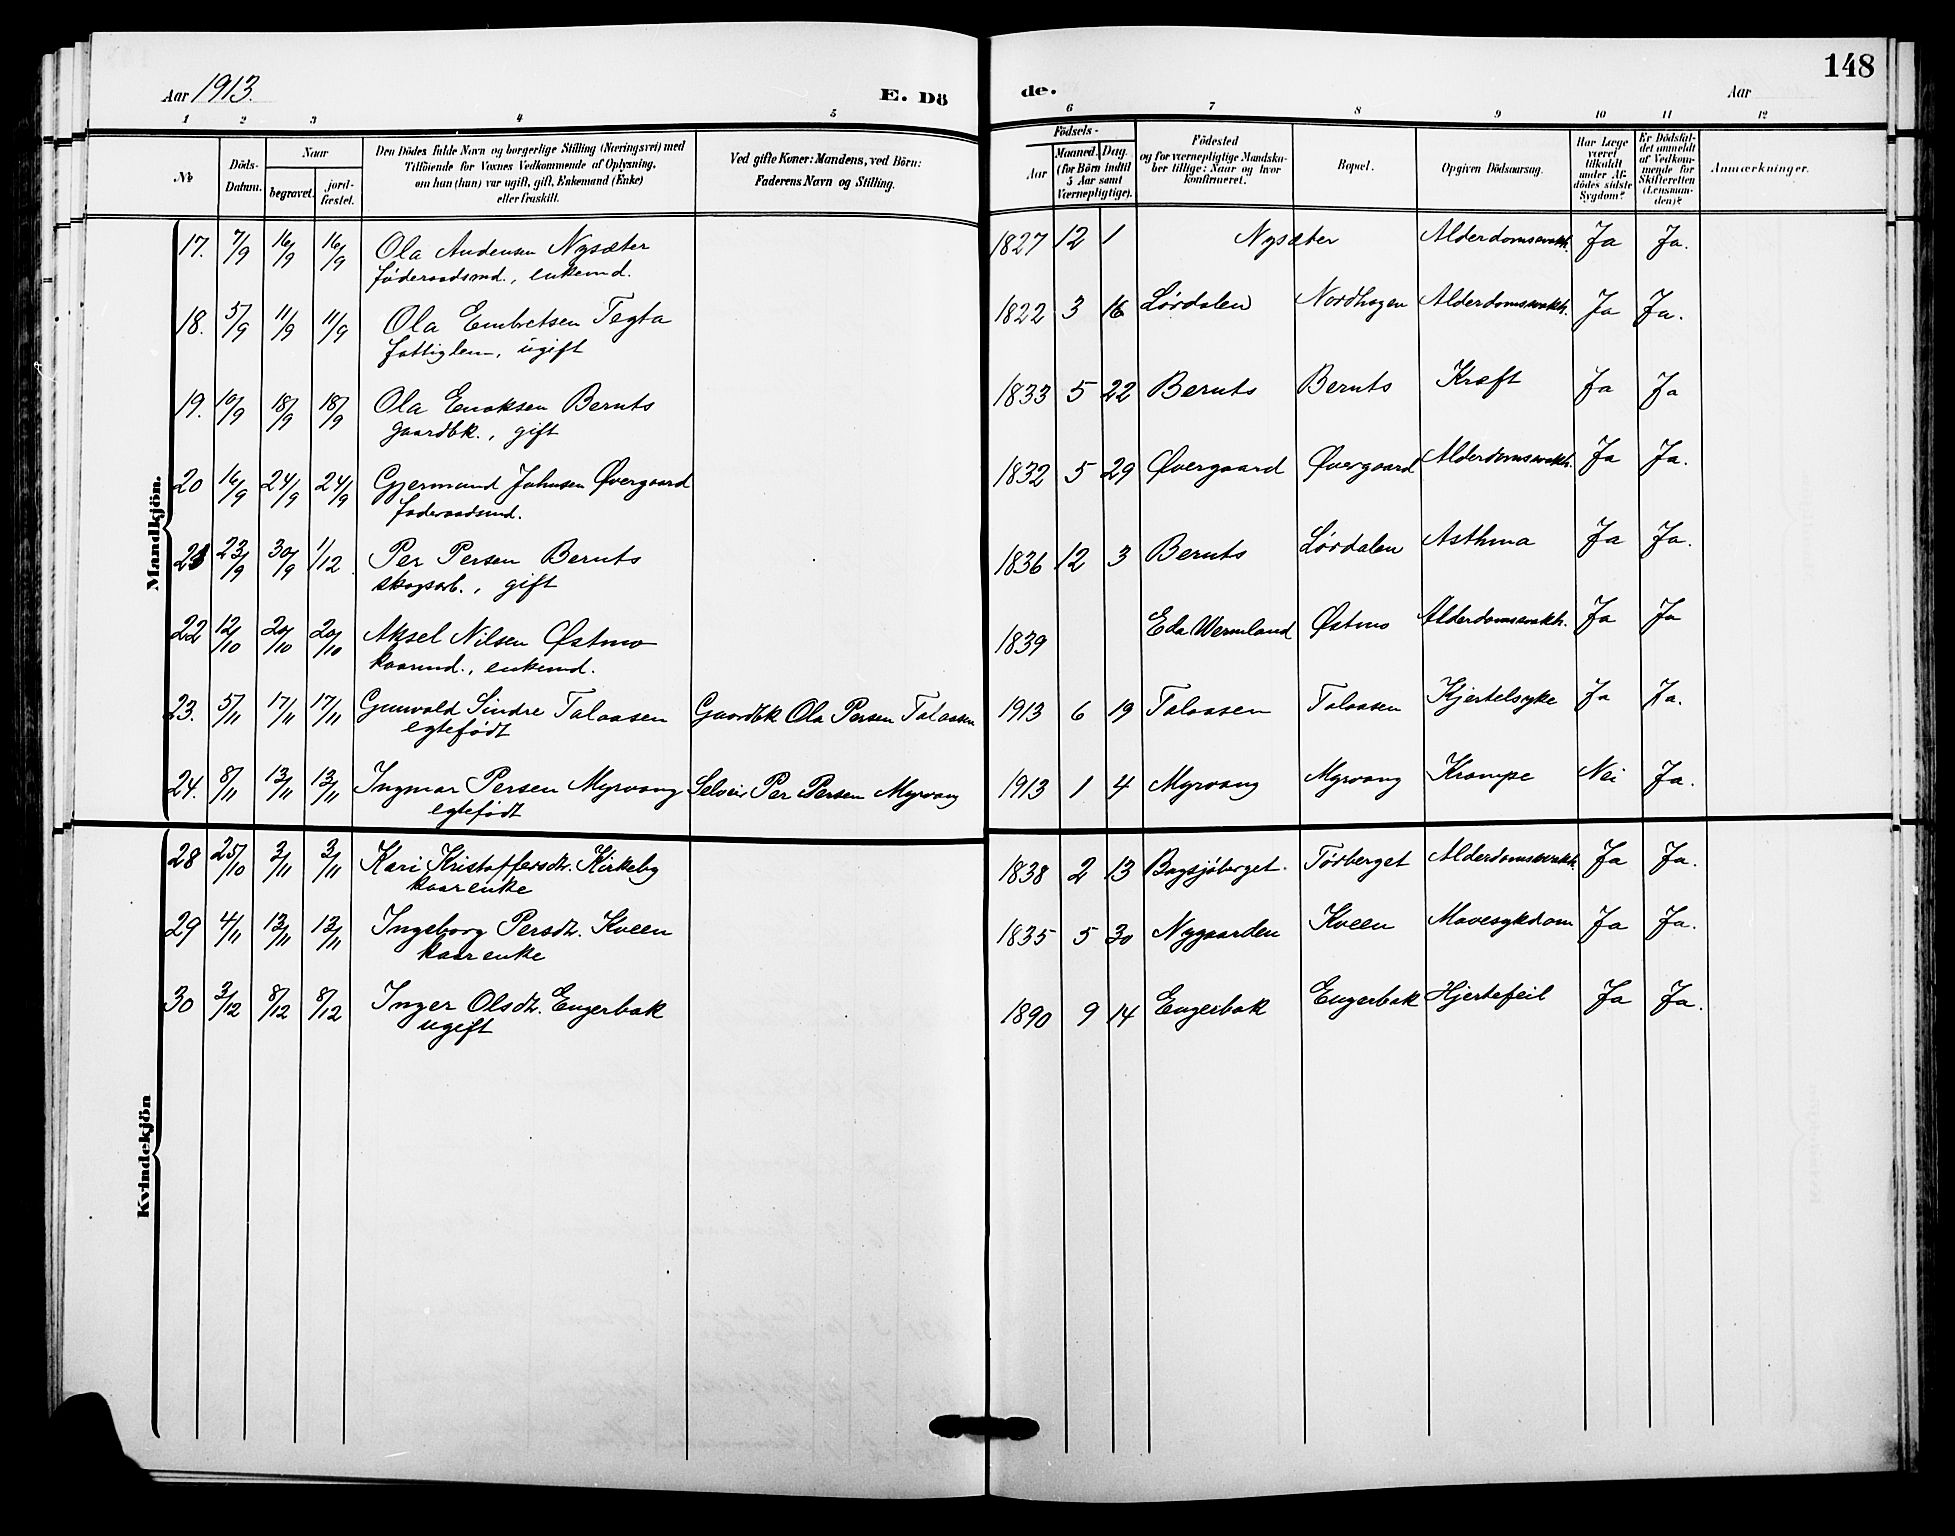 148
Aar 1913.
E. Dö
de.
Aar
1 2 3 4 5 6 7 8 9 10 11 12
No
Döds-Datum.
Naar
begravet.
jordfæstet.
Den Dödes fulde Navn og borgerlige Stilling (Næringsvei) med
Tilföiende for Voxnes Vedkommende af Oplysning,
om han (hun) var ugift, gift, Enkemand (Enke)
eller fraskilt.
Ved gifte Koner: Mandens, ved Börn:
Faderens Navn og Stilling.
Födsels-
Aar
Maaned. Dag.
(for Börn indtil
5 Aar samt
Værnepligtige).
Födested
og for værnepligtige Mandskaber tillige: Naar og hvor
konfirmeret.
Bopæl.
Opgiven Dödsaarsag.
Har Læge
været
tilkaldt
under Afdödes sidste
Sygdom?
Er Dödsfaldet anmeldt
af Vedkommende for
Skifteretten
(Lensmanden)?
Anmærkninger.
Mandkjön.
17. 7/9 16/9 16/9 Ola Andensen Nysæter 1827 12 1 Nysæter Alderdomssvakh. Ja Ja.
føderaadsmd., enkemd.
18. 5/9 11/9 11/9 Ola Embretsen Tegta 1822 3 16 Lørdalen Nordhagen Alderdomssvakh. Ja Ja.
fattiglem, ugift
19. 10/9 18/9 18/9 Ola Enoksen Beruts 1833 5 22 Beruts Beruts Kræft Ja Ja
gaardbk., gift
20 16/9 24/9 24/9 Gjermund Johnsen Øvergaard 1832 5 29 Øvergaard Øvergaard Alderdomssvakh. Ja Ja.
føderaadsmd.
21 23/9 30/9 1/12 Per Persen Beruts 1836 12 3 Beruts Lørdalen Asthma Ja Ja.
skogsarb., gift
22 12/10 20/10 20/10 Aksel Nilsen Østmo 1839 Eda Wermland Østmo Alderdomssvakh. Ja Ja
kaarmd., enkemd.
23. 5/11 17/11 17/11 Gunvald Sindre Talaasen Gaardbk Ola Persen Talaasen 1913 6 19 Talaasen Talaasen Kjertelsyke Ja Ja.
egtefødt
24. 8/11 13/11 13/11 Ingmar Persen Myrvang Selveier Per Persen Myrvang 1913 1 4 Myrvang Myrvang Krampe Nei Ja.
egtefødt
Kvindekjön
28 25/10 3/11 3/11 Kari Kristoffersdtr. Kirkeby 1838 2 13 Bagsjöberget. Tørberget Alderdomssvakh. Ja Ja.
kaarenke
29 4/11 13/11 13/11 Ingeborg Persdtr. Kveen 1835 5 30 Nygaarden Kveen Mavesykdom Ja Ja.
kaarenke
30 3/12 8/12 8/12 Inger Olsdtr. Engerbak 1890 9 14 Engerbak Engerbak Hjertefeil Ja Ja.
ugift